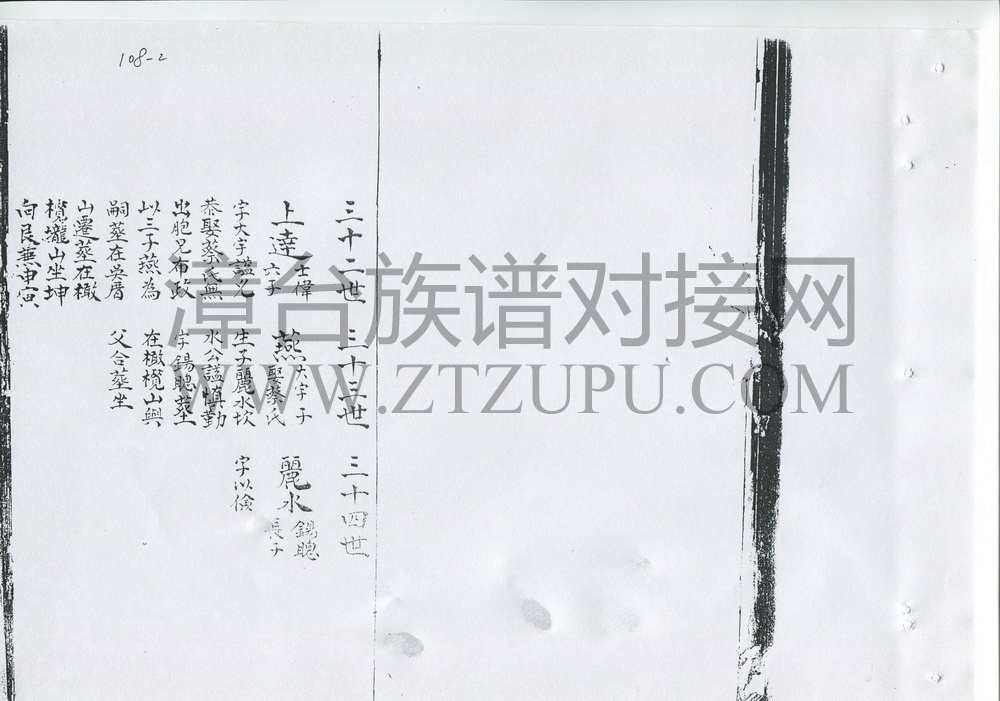 108-2
三十二世
上達 士偉六子
字大宇謚允
恭娶蔡氏無
出胞兄布政
以三子燕為
嗣葬在吳厝
山遷葬在橄
欖壠山坐坤
向艮兼申寅
三十三世
燕 大宇子娶蔡氏
生子麗水坎
水公謚慎勤
字錫聰葬
在橄欖山與
父合葬坐
三十四世
麗水 錫聰長子
字以儉
漳台族谱对接网
WWW.ZTZUPU.COM